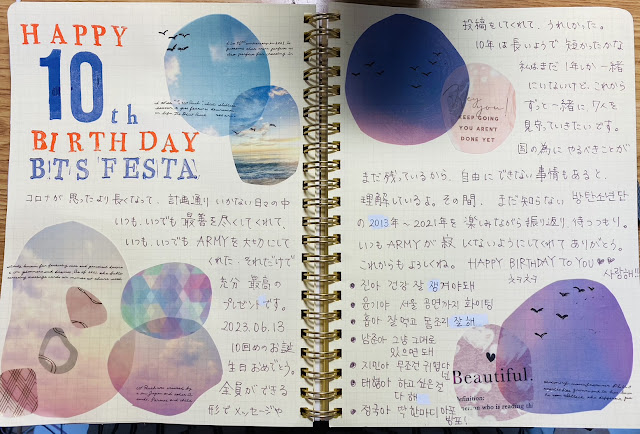 HAPPY
10th
BIRTHDAY
BTS FESTA
コロナが 思ったより長くなって、計画通り いかない日々の中
いつも、いつでも 最善を尽くしてくれて、
いつも、いつでも ARMYを大切にして
くれた。それだけで
充分 最高の
プレゼントです。
2023.06.13
10回めのお誕
生日おめでとう。
全員ができる
形で メッセージや
投稿をしてくれて、うれしかった。
10年は長いようで 短かったかな
私はまだ 1年しか一緒
にいないけど、これから
ずっと一緒に 7人を
見守っていきたいです。
国の為に やるべきことが
まだ残っているから、自由にできない事情もあると、
理解しているよ。その間、まだ知らない 방탄소년단
の 2013年～2021年を 楽しみながら振り返り 待っつもり。
いつもARMYが 寂しくないようにしてくれて ありがとう。
これからもよろしくね。HAPPY BIRTHDAY TO YOU
사랑해!!
Hey, you!
KEEP GOING
YOU AREN'T
DONE YET
진아 건강 잘 챙겨야돼
윤기야 서울 공연까지 화이팅
홉아 잘 먹고 몸조리 잘 해
남준아 그냥 그대로
있으면 돼
지민아 무조건 귀엽다
태형아 하고 싶은 것
다 해
정국아 딱 한마디
Beautiful.
Definition:
who is reading th